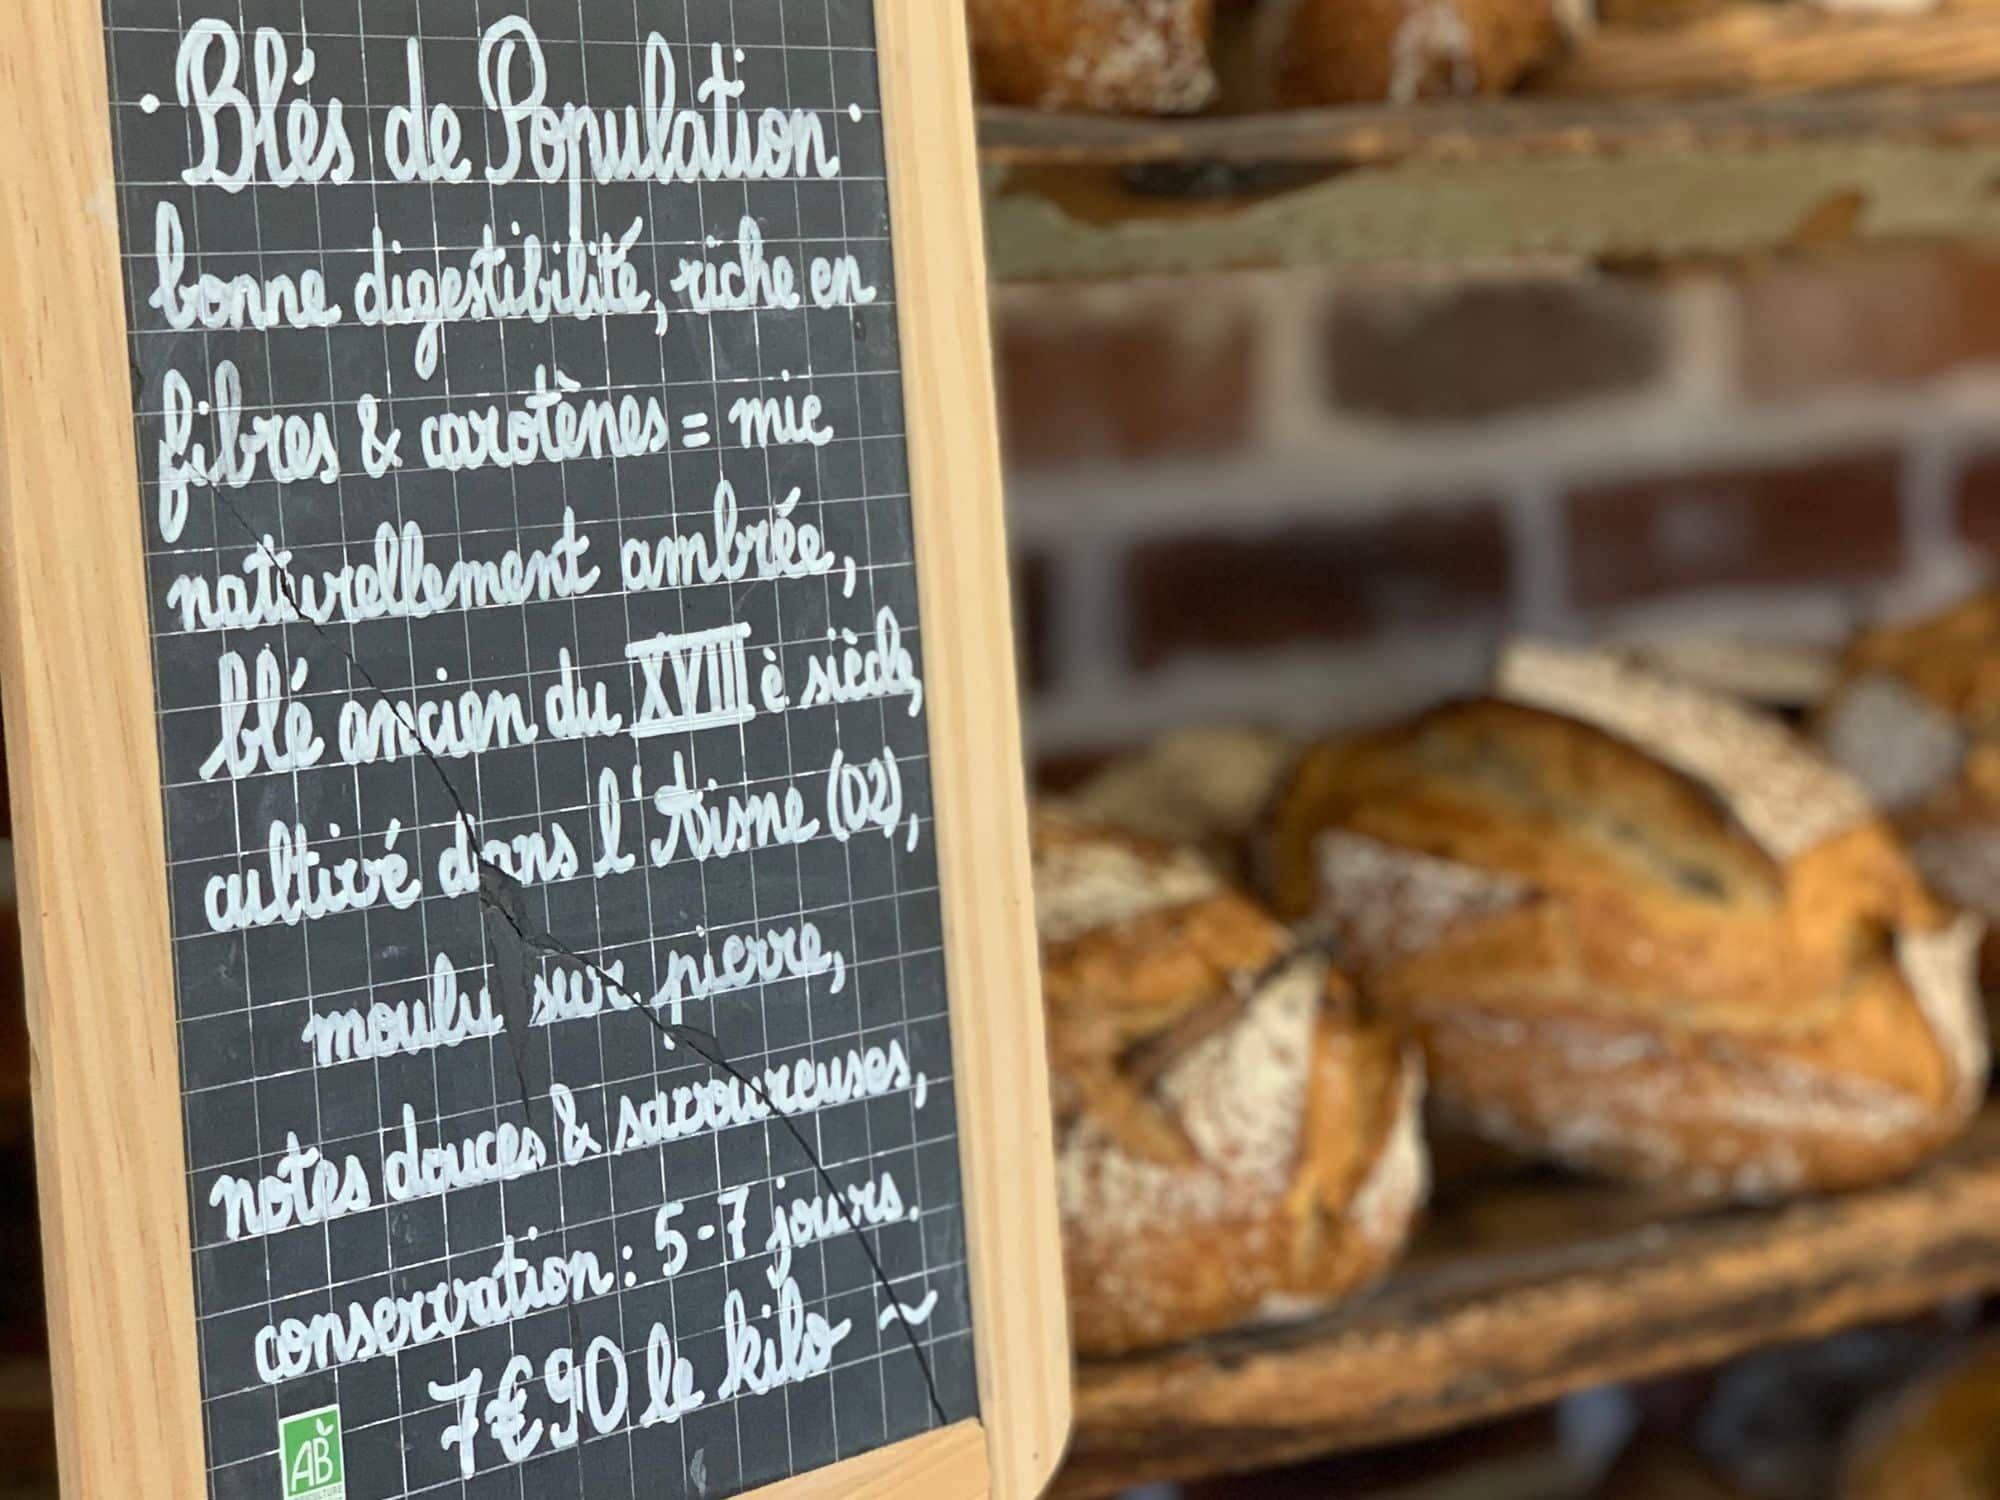 · Blés de Population ·
bonne digestibilité, riche en
fibres & carotènes = mie
naturellement ambrée,
blé ancien du XVIII è siècle,
cultivé dans l'Aisne (02),
moulu sur pierre,
notes douces & savoureuses,
conservation : 5-7 jours.
7€90 le kilo ~
AB